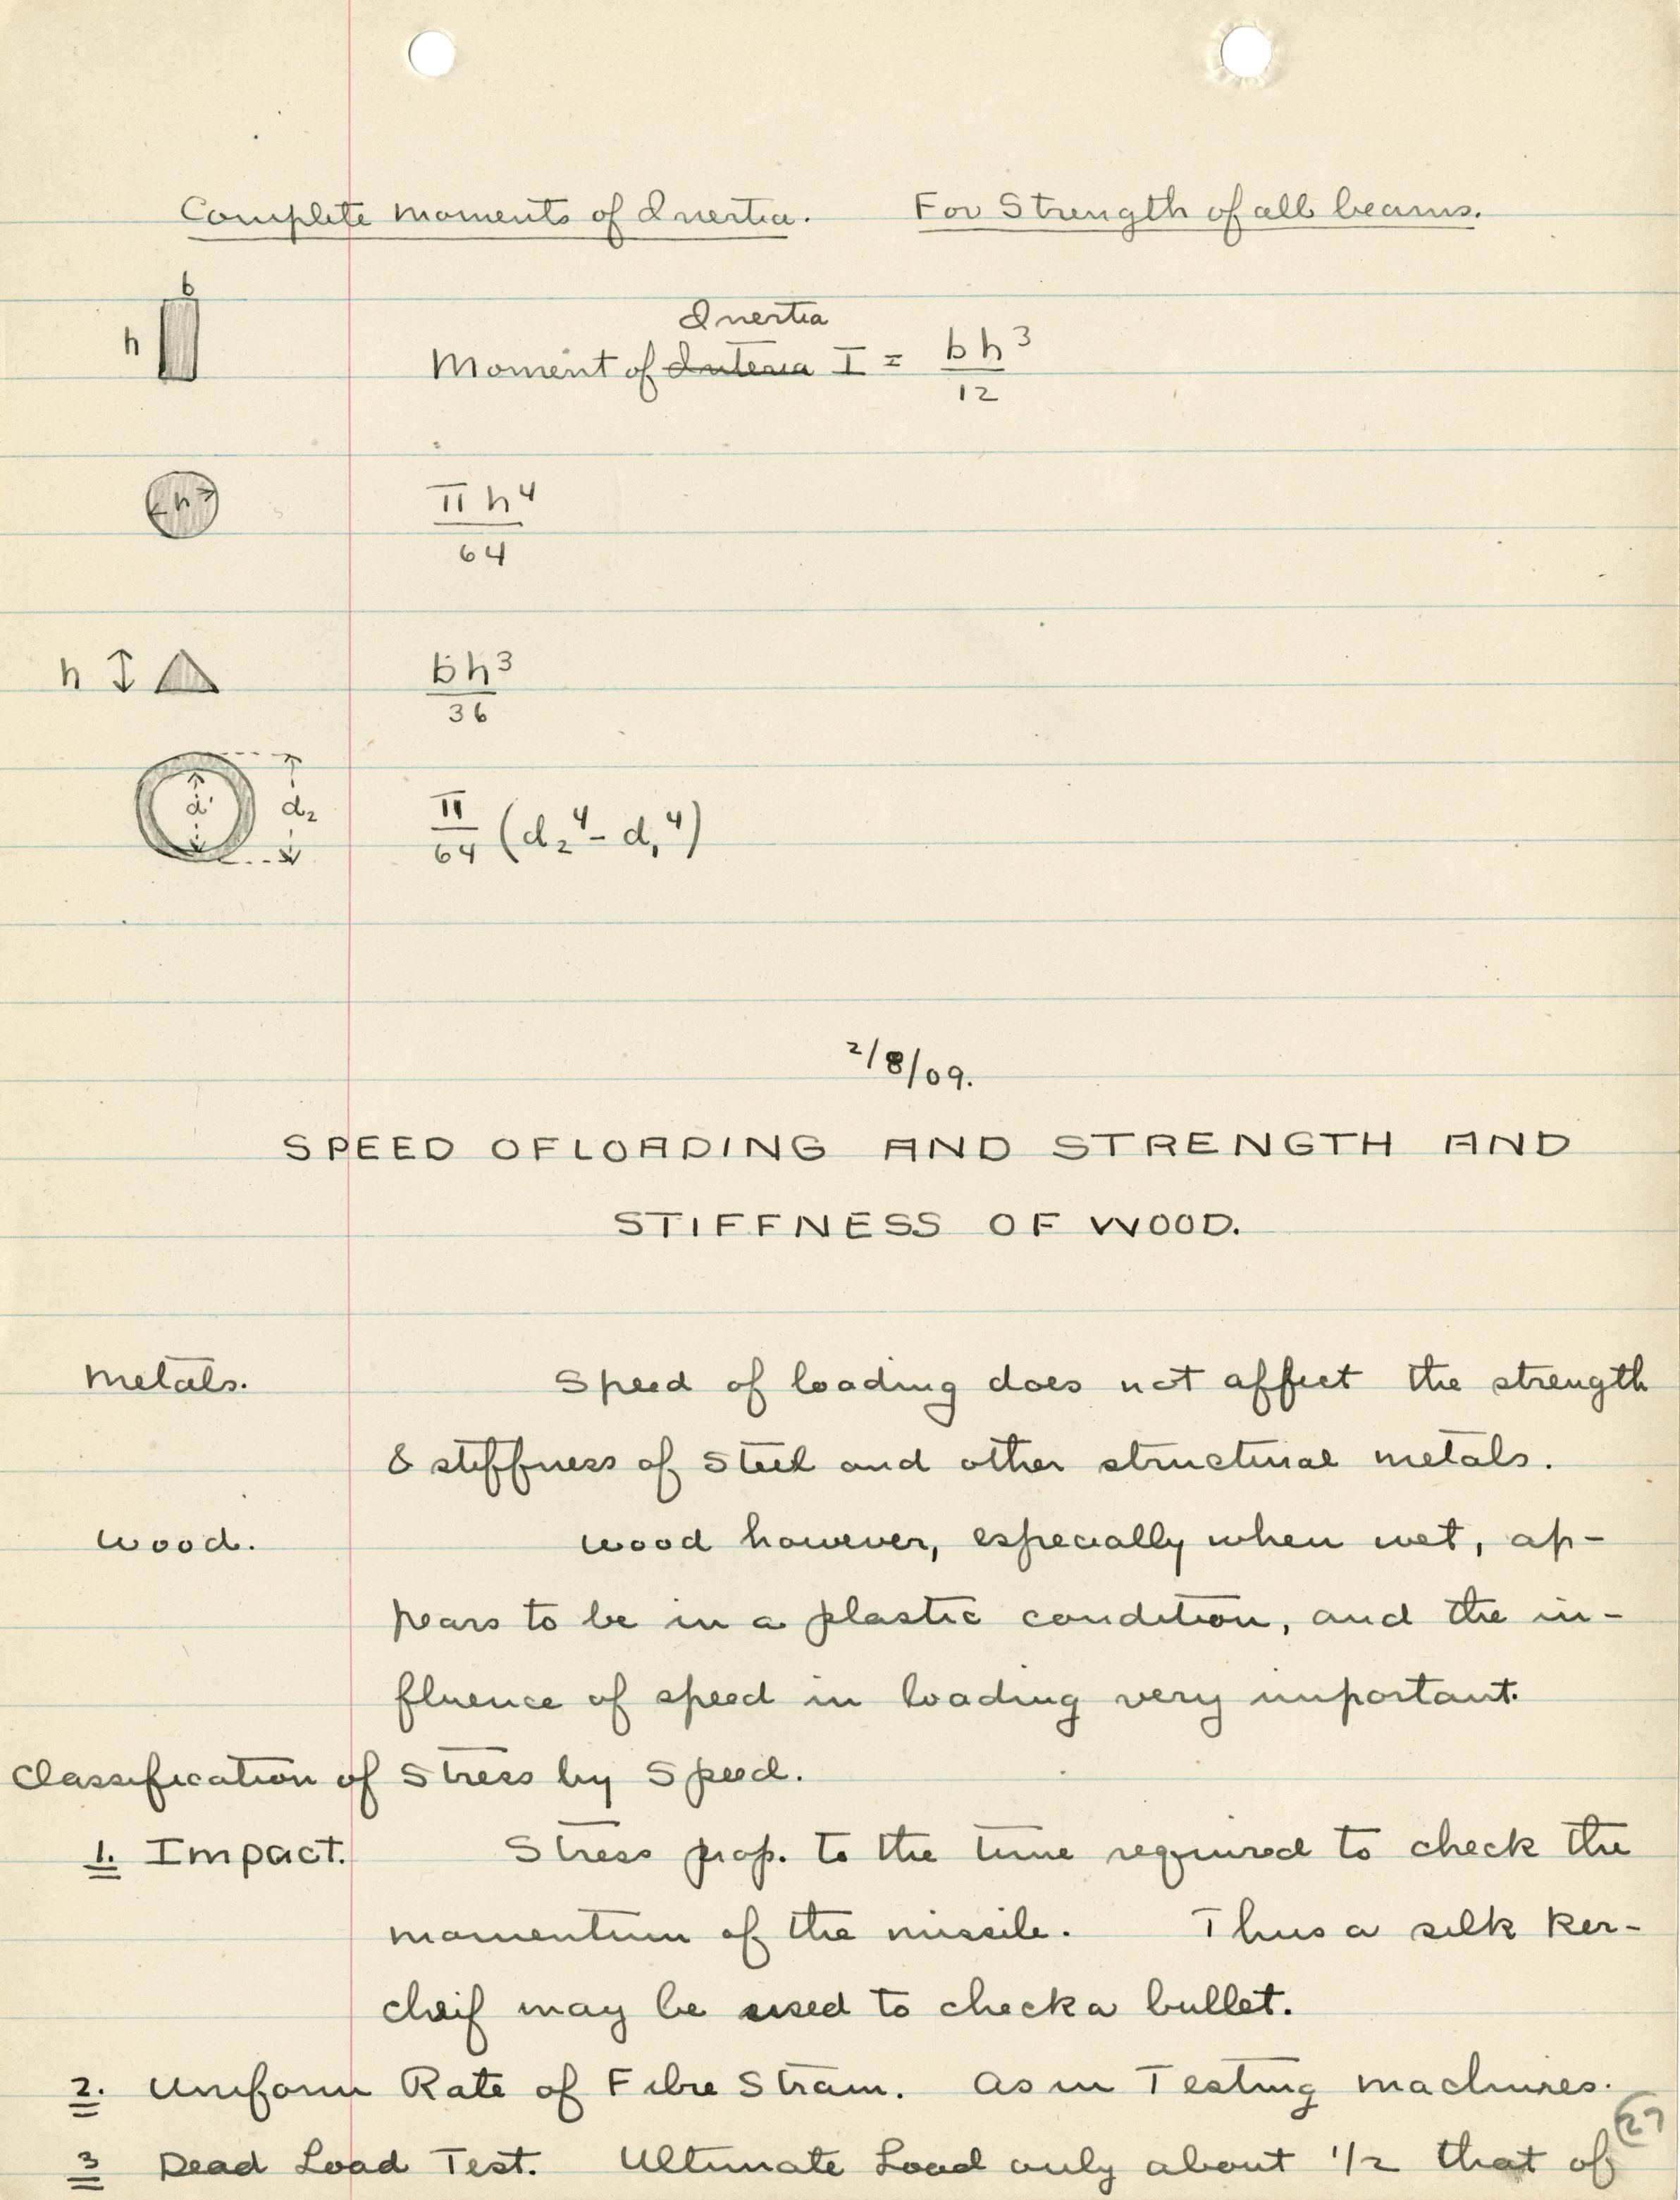 Complete Moments of Inertia. For Strength of all beams.
b
h
Inertia
Moment of Interia I = bh³/12
h
πh⁴/64
h
bh³/36
d'
d₂
π/64 (d₂⁴ - d₁⁴)
2/8/09.
SPEED OF LOADING AND STRENGTH AND
STIFFNESS OF WOOD.
Metals. Speed of loading does not affect the strength
& stiffness of steel and other structural metals.
Wood. Wood however, especially when wet, ap-
pears to be in a plastic condition, and the in-
fluence of speed in loading very important.
Classification of Stress by Speed.
1. Impact. Stress prop. to the time required to check the
momentum of the missile. Thus a silk ker-
cheif may be used to check a bullet.
2. Uniform Rate of Fibre Strain. As in Testing machines.
27
3 Dead Load Test. Ultimate Load only about 1/2 that of